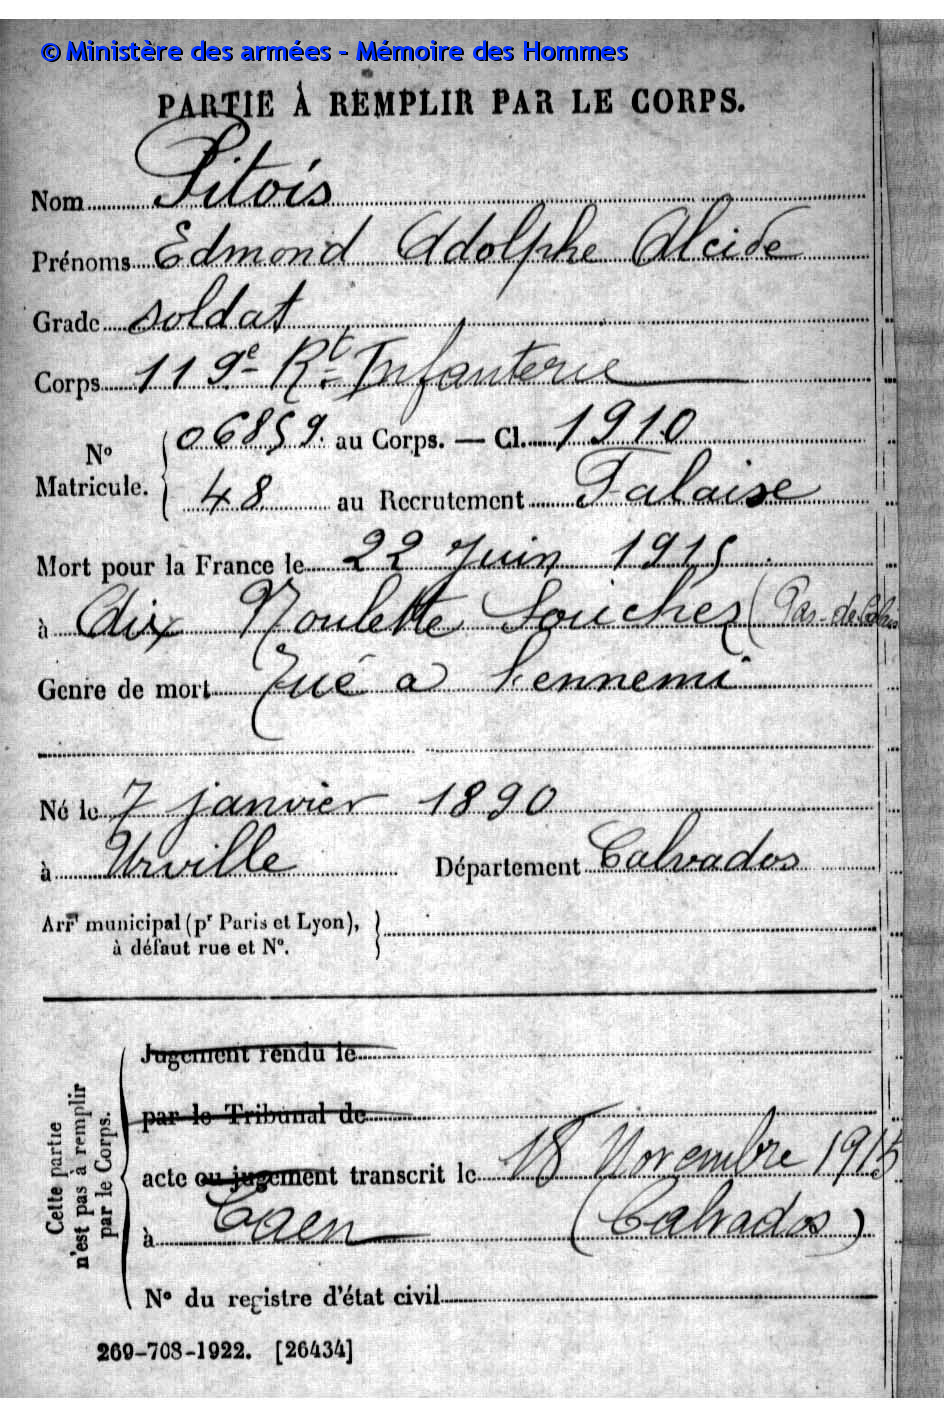 © Ministère des armées - Mémoire des Hommes
PARTIE À REMPLIR PAR LE CORPS.
Nom Pitois
Prénoms Edmond Adolphe Alcide
Grade soldat
Corps 119e Rt Infanterie
No Matricule. 06859. au Corps. — Cl. 1910
48. au Recrutement Falaise
Mort pour la France le 22 Juin 1915.
à Aix Noulette Souchez (Pas-de-Calais
Genre de mort Tué à l'ennemi
Né le 7 janvier 1890
à Urville Département Calvados
Arrt municipal (pr Paris et Lyon),
à défaut rue et No.
Cette partie
n'est pas à remplir
par le Corps.
Jugement rendu le
par le Tribunal de
acte ou jugement transcrit le 18 Novembre 1915
à Caen (Calvados)
No du registre d'état civil
269-708-1922. [26434]